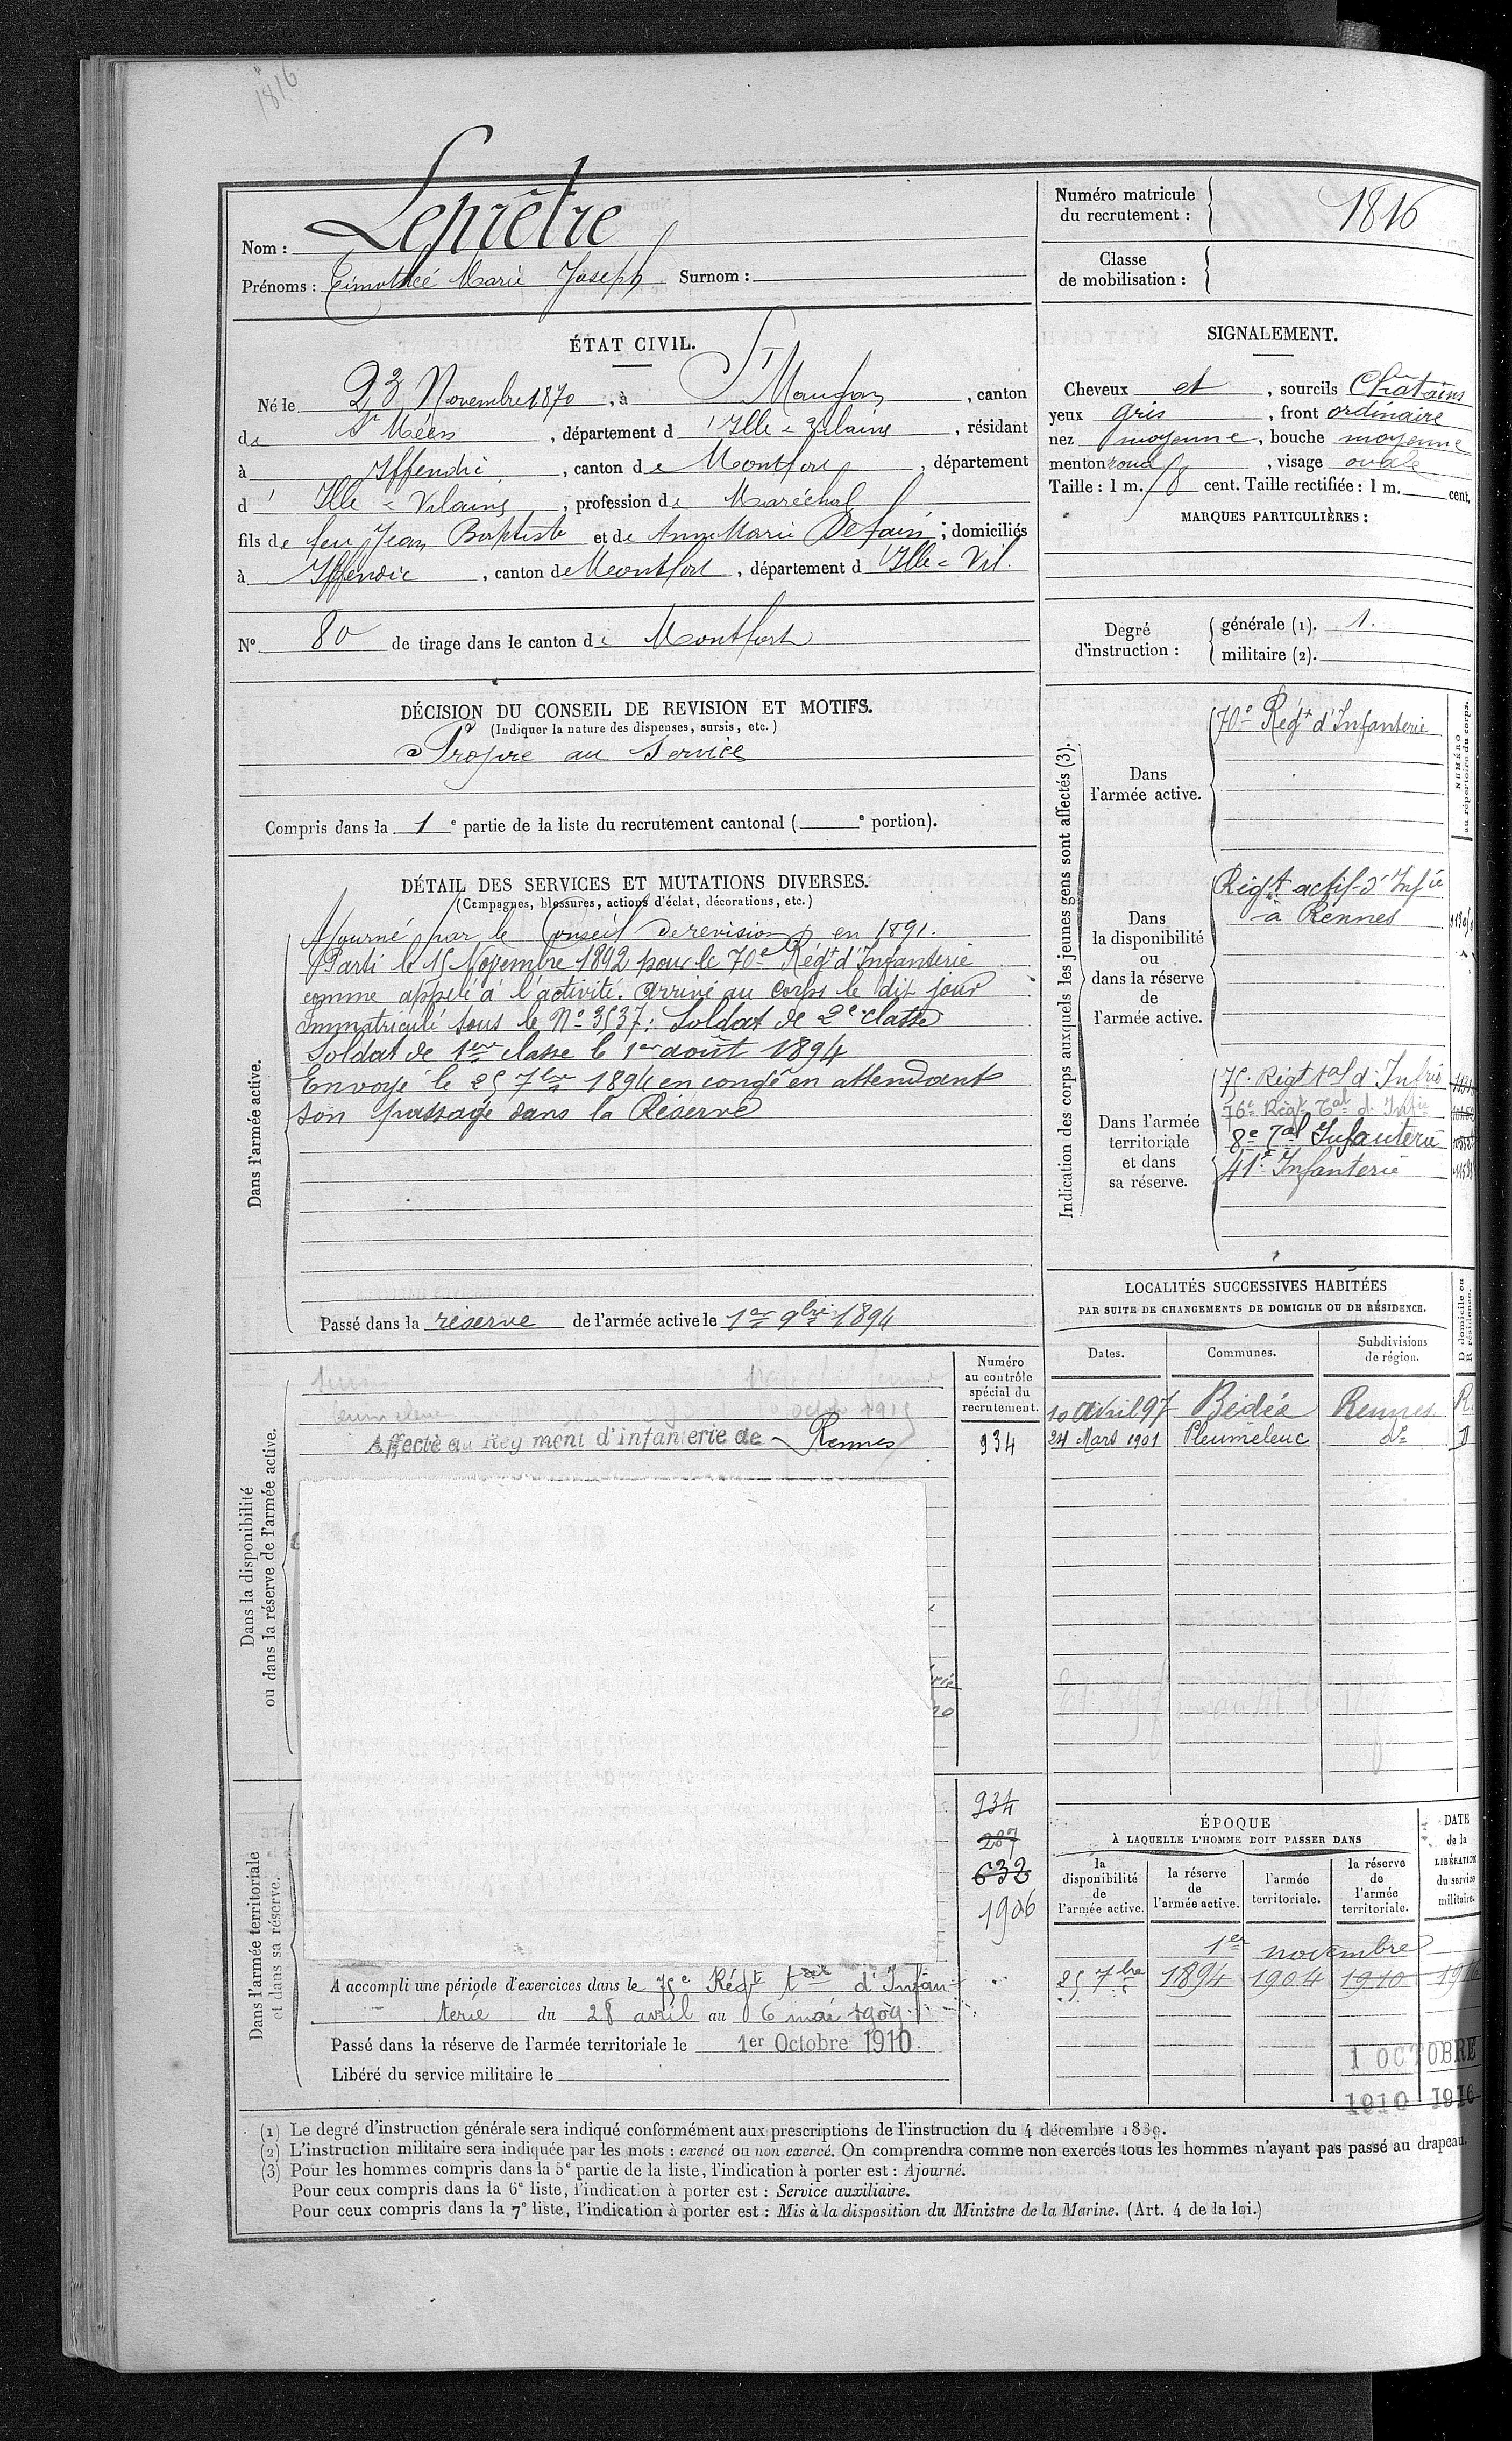 1816
Nom : Leprêtre
Prénoms : Timothée Marie Joseph Surnom :
Numéro matricule du recrutement : 1816
Classe de mobilisation :
ÉTAT CIVIL.
Né le 23 Novembre 1870, à St Maugan, canton
de St Méen, département d'Ille-&-Vilaine, résidant
à Iffendic, canton de Montfort, département
d'Ille & Vilaine, profession de Maréchal
fils de feu Jean Baptiste et de Anne Marie ; domiciliés
à Iffendic, canton de Montfort, département d'Ille & Vil.
N° 80 de tirage dans le canton de Montfort
DÉCISION DU CONSEIL DE REVISION ET MOTIFS.
(Indiquer la nature des dispenses, sursis, etc.)
Propre au service
Compris dans la 1e partie de la liste du recrutement cantonal ( e portion).
DÉTAIL DES SERVICES ET MUTATIONS DIVERSES.
(Campagnes, blessures, actions d'éclat, décorations, etc.)
Dans l'armée active.
Ajourné par le Conseil de revision en 1891.
Parti le 15 Novembre 1892 pour le 70e Régt d'Infanterie
comme appelé à l'activité. Arrivé au corps le dit jour
Immatriculé sous le N° 3537. Soldat de 2e classe
Soldat de 1ère classe le 1er août 1894
Envoyé le 25 7bre 1894 en congé en attendant
son passage dans la Réserve
Passé dans la réserve de l'armée active le 1er 9bre 1894
Dans la disponibilité
ou dans la réserve de l'armée active.
Numéro
au contrôle
spécial du
recrutement.
octobre 1915
Affecté au Régiment d'infanterie de Rennes 934
Dans l'armée territoriale
et dans sa réserve.
934
287
632
1906
A accompli une période d'exercices dans le 75e Régt tal d'Infan-
terie du 28 avril au 6 mai 1909.
Passé dans la réserve de l'armée territoriale le 1er Octobre 1910
Libéré du service militaire le
SIGNALEMENT.
Cheveux et, sourcils Châtains
yeux gris, front ordinaire
nez moyenne, bouche moyenne
menton rond, visage ovale
Taille : 1 m. cent. Taille rectifiée : 1 m. cent.
MARQUES PARTICULIÈRES :
Degré d'instruction :
générale (1). 1.
militaire (2).
Indication des corps auxquels les jeunes gens sont affectés (3).
NUMÉRO
au répertoire du corps.
Dans
l'armée active.
70e Régt d'Infanterie
Dans
la disponibilité
ou
dans la réserve
de
l'armée active.
Régt actif d'Infie
à Rennes
Dans l'armée
territoriale
et dans
sa réserve.
75e Régt tal d'Infrie
76e Régt Tal d'Infie
8e Tal Infanterie
41e Infanterie
LOCALITÉS SUCCESSIVES HABITÉES
PAR SUITE DE CHANGEMENTS DE DOMICILE OU DE RÉSIDENCE.
Dates. Communes. Subdivisions de région. D domicile ou R résidence.
10 Avril 97 Bédée Rennes R.
24 Mars 1901 Pleumeleuc do D
ÉPOQUE
À LAQUELLE L'HOMME DOIT PASSER DANS
la
disponibilité
de
l'armée active.
la réserve
de
l'armée active.
l'armée
territoriale.
la réserve
de
l'armée
territoriale.
DATE
de la
LIBÉRATION
du service
militaire.
1er novembre
25 7bre 1894 1904 1910
1 OCTOBRE
1910 1916
(1) Le degré d'instruction générale sera indiqué conformément aux prescriptions de l'instruction du 4 décembre 1889.
(2) L'instruction militaire sera indiquée par les mots : exercé ou non exercé. On comprendra comme non exercés tous les hommes n'ayant pas passé au drapeau.
(3) Pour les hommes compris dans la 5e partie de la liste, l'indication à porter est : Ajourné.
Pour ceux compris dans la 6e liste, l'indication à porter est : Service auxiliaire.
Pour ceux compris dans la 7e liste, l'indication à porter est : Mis à la disposition du Ministre de la Marine. (Art. 4 de la loi.)